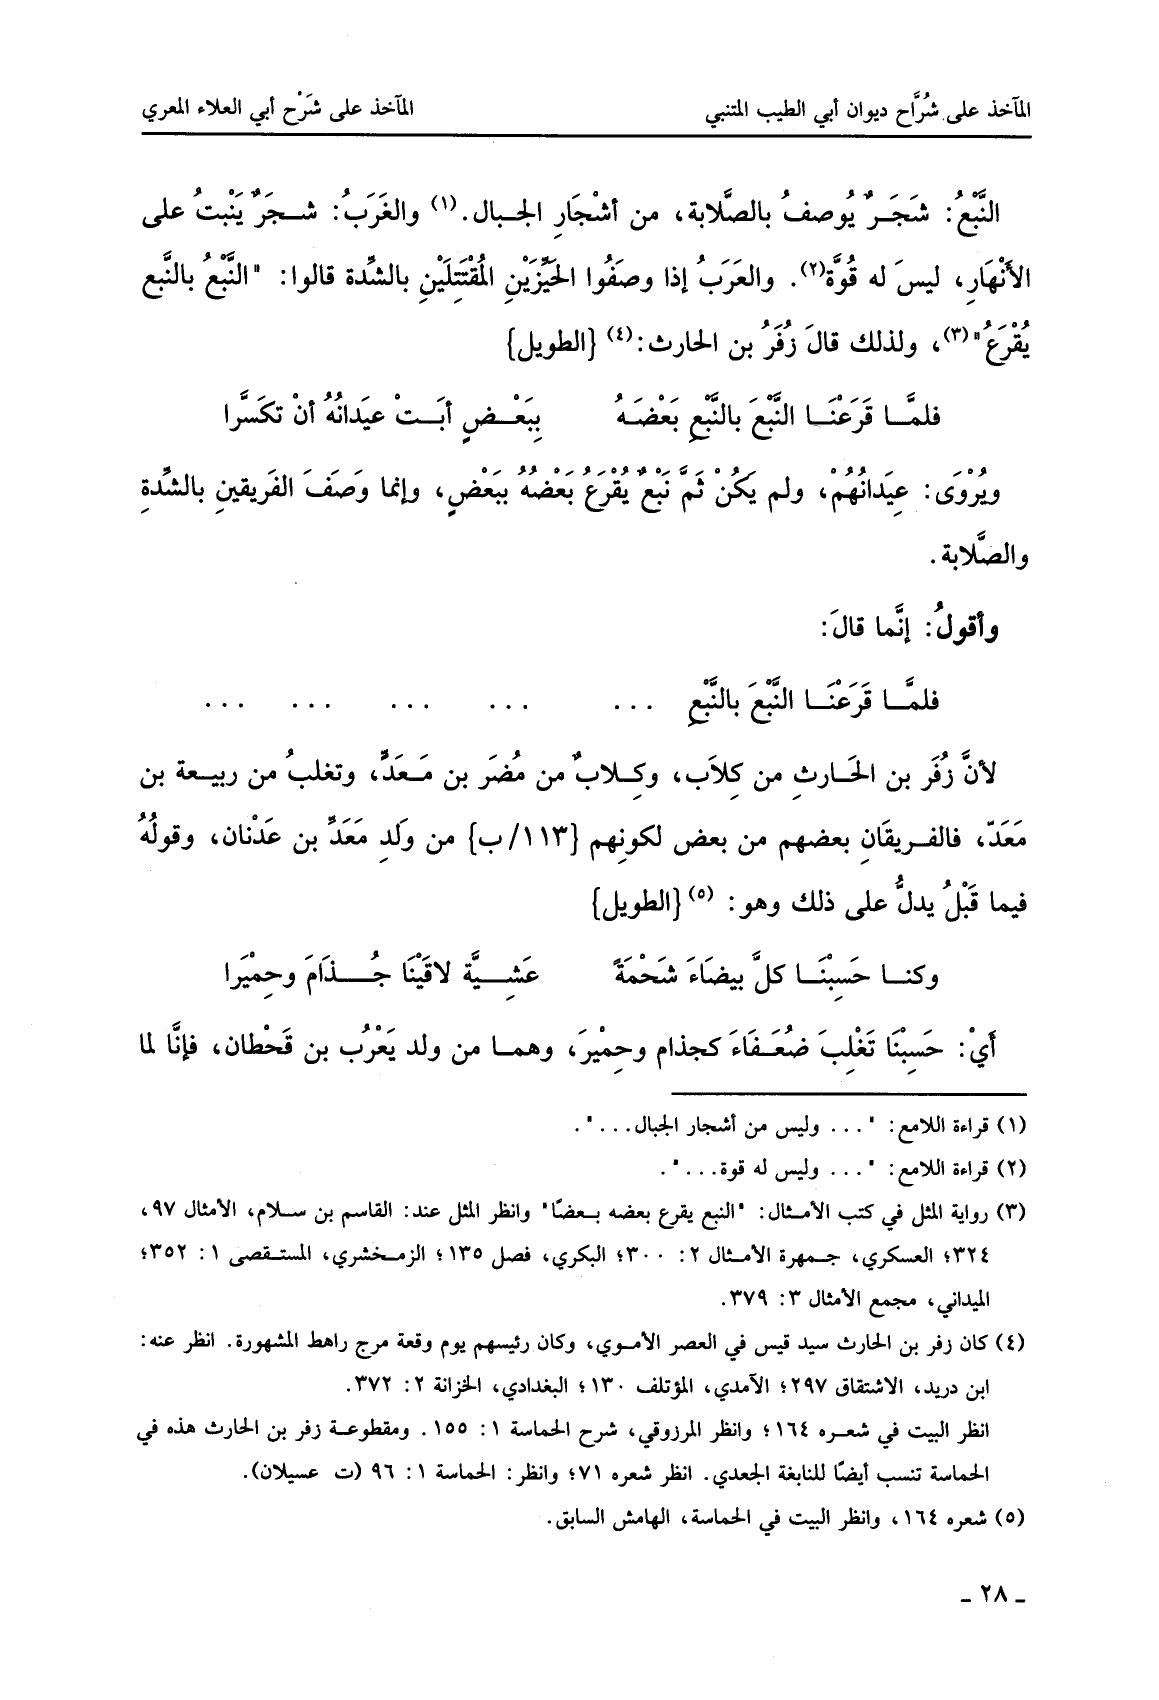 المآخذ على شُرَّاح ديوان أبي الطيب المتنبي المآخذ على شَرْح أبي العلاء المعري
النَّبْعُ: شَجَرٌ يُوصفُ بالصَّلابة، من أشْجَارِ الجبال.(١) والغَرَبُ: شجَرٌ يَنْبتُ على
الأنْهَارِ، ليسَ له قُوَّة(٢). والعَرَبُ إذا وصَفُوا الحَيِّزَيْنِ المُقْتَتِلَيْنِ بالشِّدة قالوا: "النَّبْعُ بالنَّبع
يُقْرَعُ"(٣)، ولذلك قالَ زُفَرُ بن الحارث:(٤) {الطويل}
فلمَّا قَرَعْنَا النَّبْعَ بالنَّبْعِ بَعْضَهُ بِبَعْضٍ أبَتْ عيَدانُهُ أنْ تكَسَّرا
ويُرْوَى: عِيَدانُهُمْ، ولم يَكُنْ ثَمَّ نَبْعٌ يُقْرَعُ بَعْضُهُ ببَعْضٍ، وإنما وَصَفَ الفَريقينِ بالشِّدةِ
والصَّلابة.
وأقولُ: إنَّما قالَ:
فلمَّا قَرَعْنَا النَّبْعَ بالنَّبْعِ ... ... ... ... ...
لأنَّ زُفَر بن الحَارثِ من كِلاَب، وكِلابٌ من مُضَر بن مَعَدٍّ، وتغلبُ من ربيعة بن
مَعَدّ، فالفريقَانِ بعضهم من بعض لكونِهم {١١٣/ب} من وَلَدِ مَعَدِّ بن عَدْنان، وقولُهُ
فيما قَبْلُ يدلُّ على ذلك وهو: (٥) {الطويل}
وكنا حَسِبْنَا كلَّ بيضَاءَ شَحْمَةً عَشِيَّة لاقَيْنَا جُذَامَ وحِمْيَرا
أيْ: حَسِبْنَا تَغْلِبَ ضُعَفَاءَ كجذام وحِمْيرَ، وهما من ولد يَعْرُب بن قَحْطان، فإنَّا لما
(١) قراءة اللامع: "... وليس من أشجار الجبال...".
(٢) قراءة اللامع: "... وليس له قوة...".
(٣) رواية المثل في كتب الأمثال: "النبع يقرع بعضه بعضًا" وانظر المثل عند: القاسم بن سلام، الأمثال ٩٧،
٣٢٤؛ العسكري، جمهرة الأمثال ٢: ٣٠٠؛ البكري، فصل ١٣٥؛ الزمخشري، المستقصى ١: ٣٥٢؛
الميداني، مجمع الأمثال ٣: ٣٧٩.
(٤) كان زفر بن الحارث سيد قيس في العصر الأموي، وكان رئيسهم يوم وقعة مرج راهط المشهورة. انظر عنه:
ابن دريد، الاشتقاق ٢٩٧؛ الآمدي، المؤتلف ١٣٠؛ البغدادي، الخزانة ٢: ٣٧٢.
انظر البيت في شعره ١٦٤؛ وانظر المرزوقي، شرح الحماسة ١: ١٥٥. ومقطوعة زفر بن الحارث هذه في
الحماسة تنسب أيضًا للنابغة الجعدي. انظر شعره ٧١؛ وانظر: الحماسة ١: ٩٦ (ت عسيلان).
(٥) شعره ١٦٤، وانظر البيت في الحماسة، الهامش السابق.
ـ ٢٨ ـ